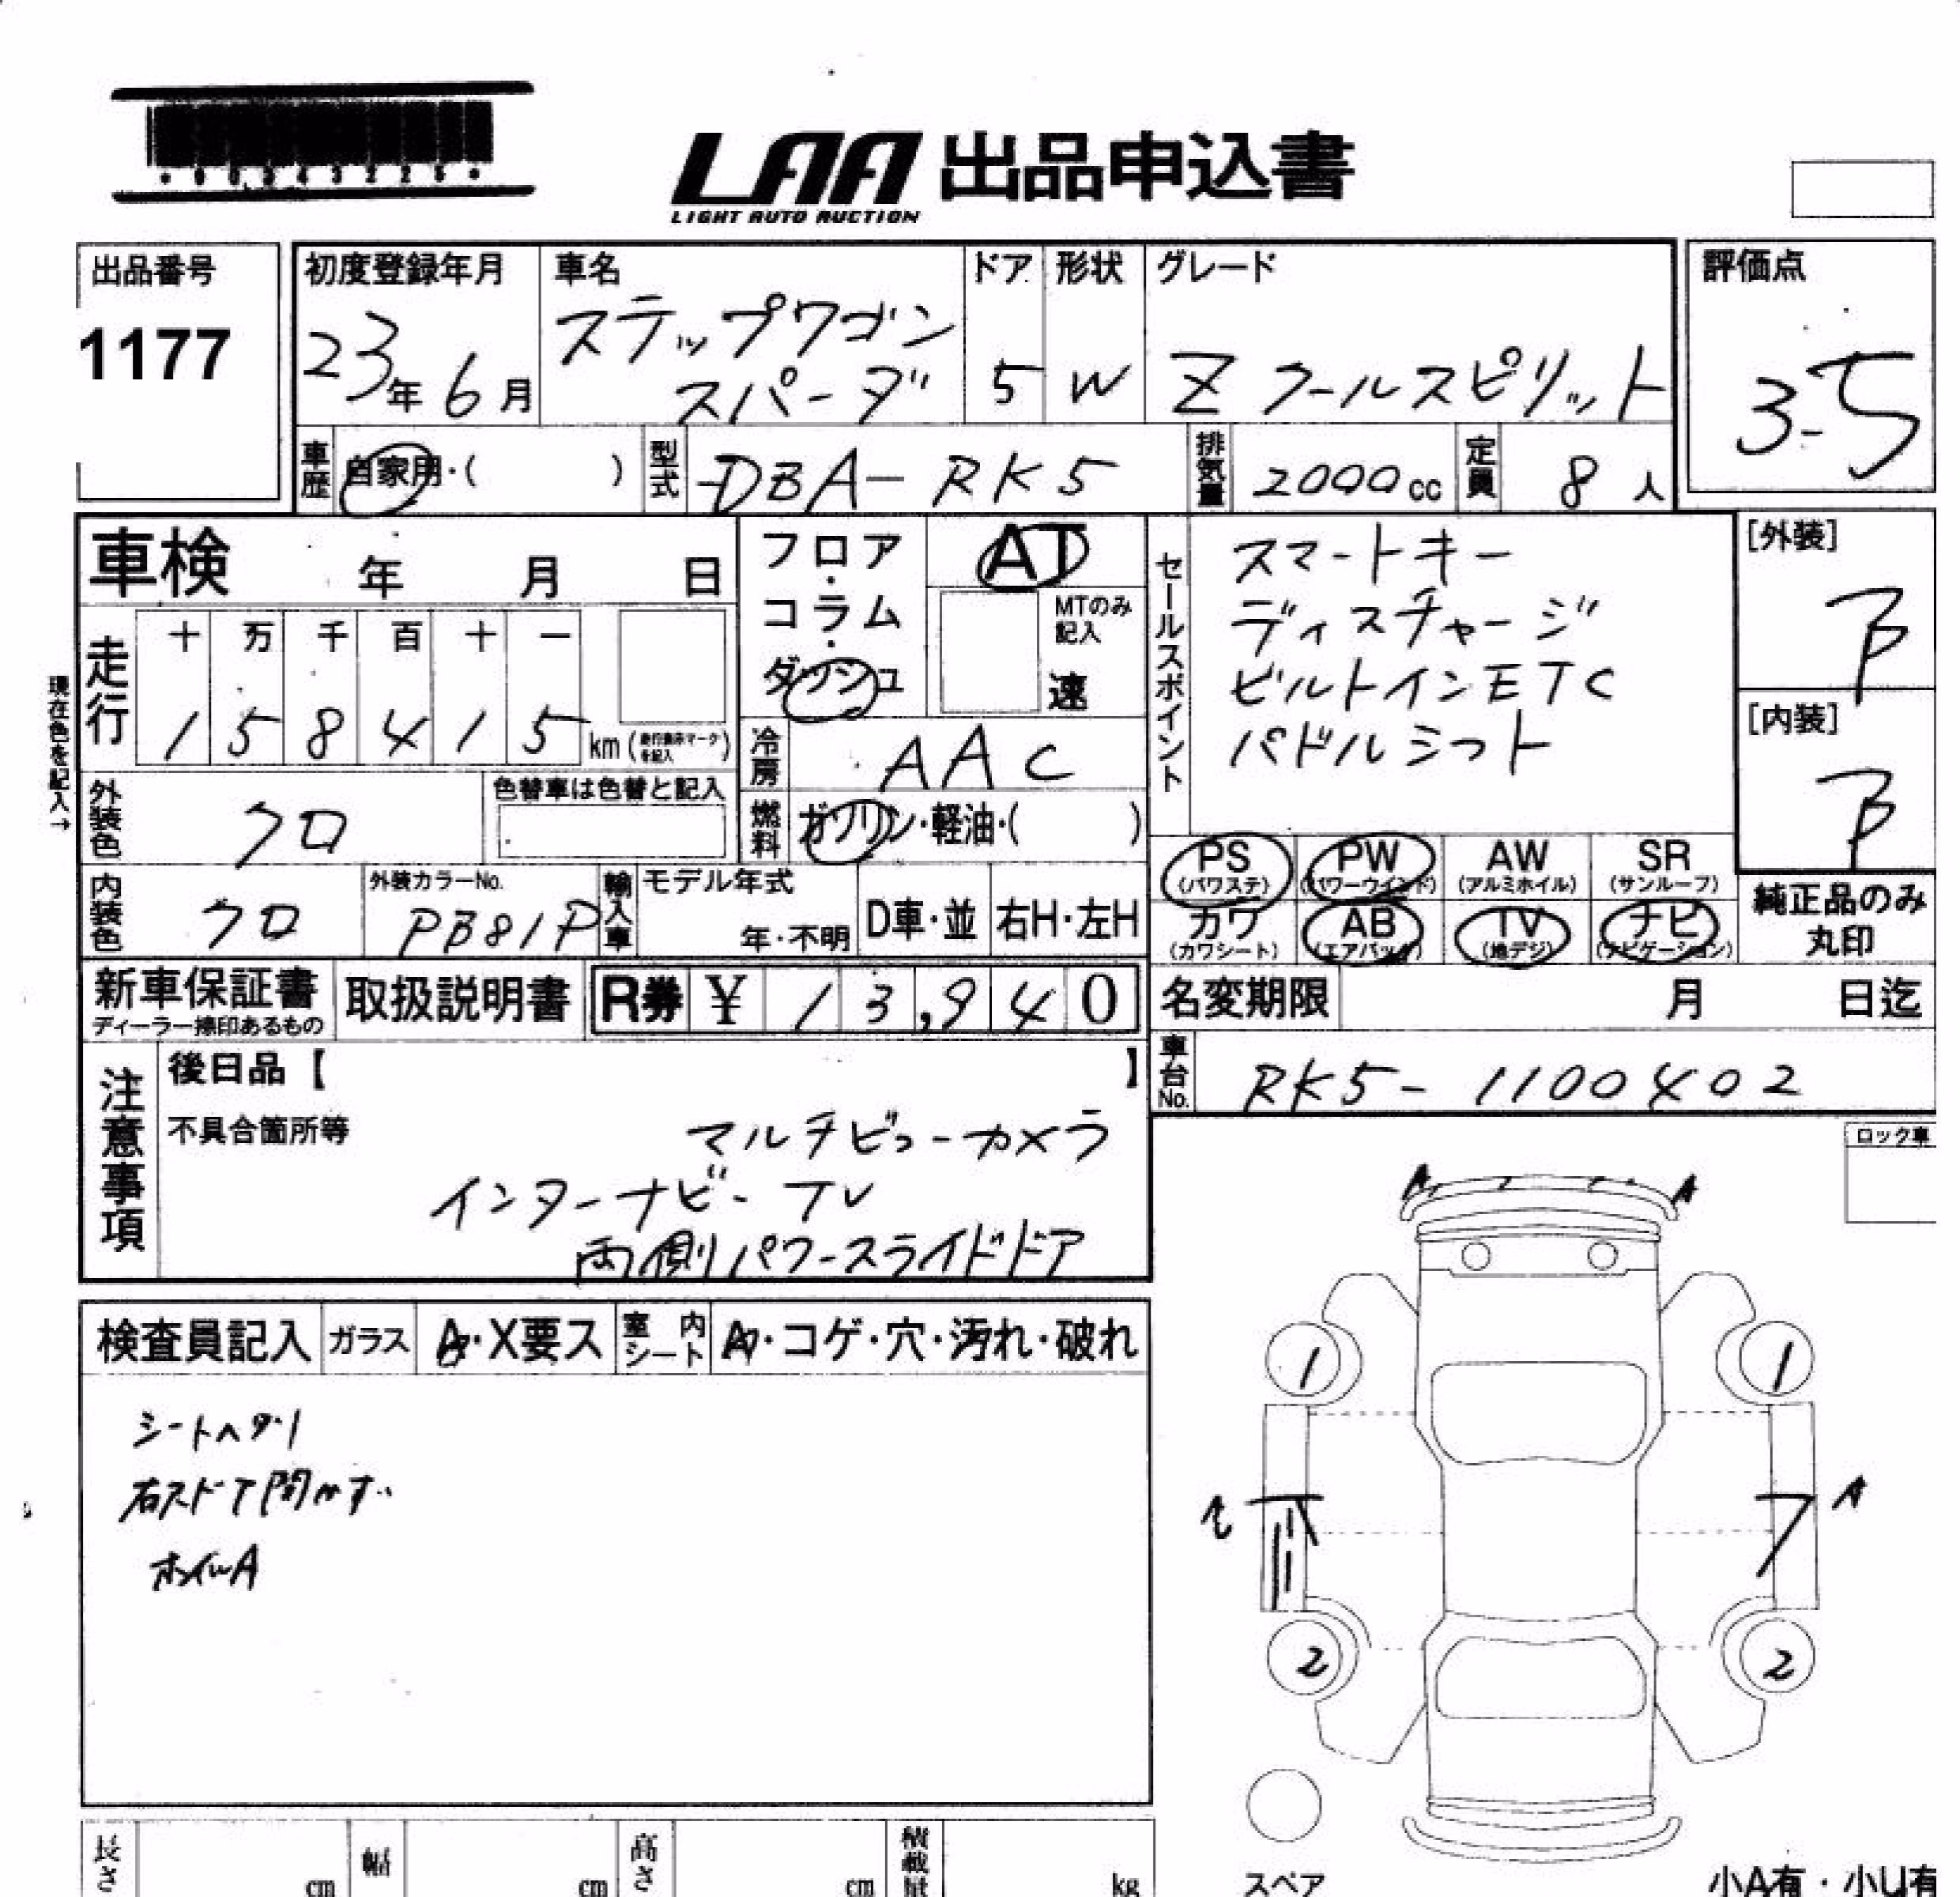 LAA 出品申込書
LIGHT AUTO AUCTION
出品番号
1177
初度登録年月
23年 6月
車名
ステップワゴン
スパーダ
ドア
5
形状
W
グレード
Z クールスピリット
評価点
3-5
車歴
自家用・( )
型式
DBA-RK5
排気量
2000cc
定員
8人
車検 年 月 日
現在色を記入→
走行
十 万 千 百 十 一
1 5 8 4 1 5 km
フロア・コラム・ダッシュ
AT
MTのみ
記入
速
冷房
AAC
燃料
ガソリン・軽油・( )
セールスポイント
スマートキー
ディスチャージ
ビルトインETC
パドルシフト
[外装]
B
[内装]
B
外装色
クロ
色替車は色替と記入
内装色
クロ
外装カラーNo.
PB81P
輸入車
モデル年式
年・不明
D車・並
右H・左H
PS PW AW SR
(パワステ) (パワーウインド) (アルミホイル) (サンルーフ)
カワ AB TV ナビ
(カワシート) (エアバッグ) (地デジ) (ナビゲーション)
純正品のみ
丸印
新車保証書
ディーラー捺印あるもの
取扱説明書
R券 ¥ 13,940
名変期限 月 日迄
車台No.
RK5-1100402
注意事項
後日品【 】
不具合箇所等
マルチビューカメラ
インターナビ-TV
両側パワースライドドア
ロック車
検査員記入
ガラス
A・X要ス
室内
シート
A・コゲ・穴・汚れ・破れ
シートヘタリ
右スドア開かず
ホイルA
A A
1 1
A
2 2
スペア
小A有・小U有
長さ cm
幅 cm
高さ cm
積載量 kg